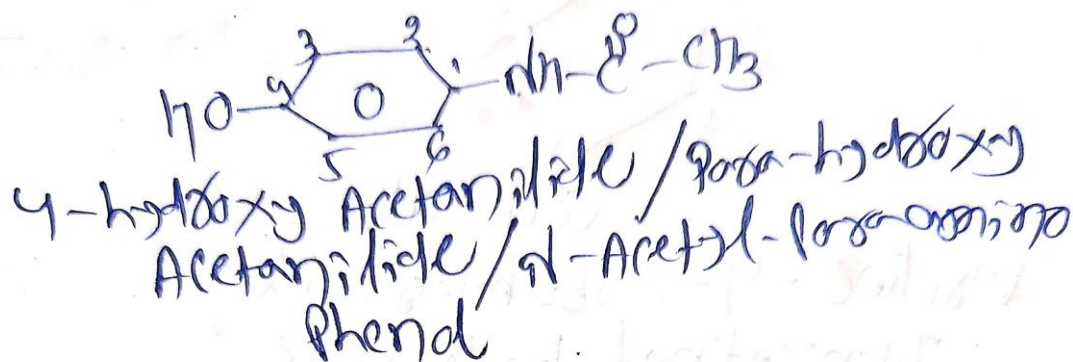 3 2
HO-4 1-NH-C-CH3
O
5 6
4-hydroxy Acetanilide / Para-hydroxy
Acetanilide / N-Acetyl-Para amino
Phenol